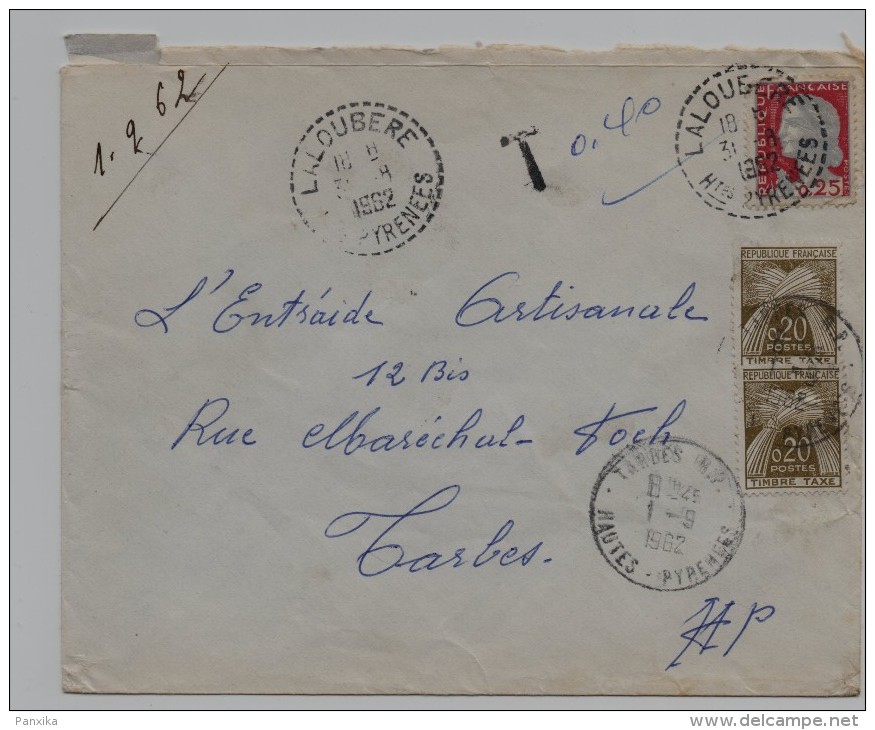 1. 9 62
LALOUBERE
18 H
31 - 8
1962
PYRENEES
T
0.40
LALOUBERE
18 H
31 - 8
1962
Htes PYRENEES
REPUBLIQUE FRANÇAISE
0,25
POSTES
REPUBLIQUE FRANÇAISE
0,20
POSTES
TIMBRE TAXE
REPUBLIQUE FRANÇAISE
0,20
POSTES
TIMBRE TAXE
L'Entráide Artisanale
12 Bis
Rue Maréchal-Foch
Tarbes.
HP
TARBES
1 - 9
1962
HAUTES - PYRENEES
Panxika
delcampe.net